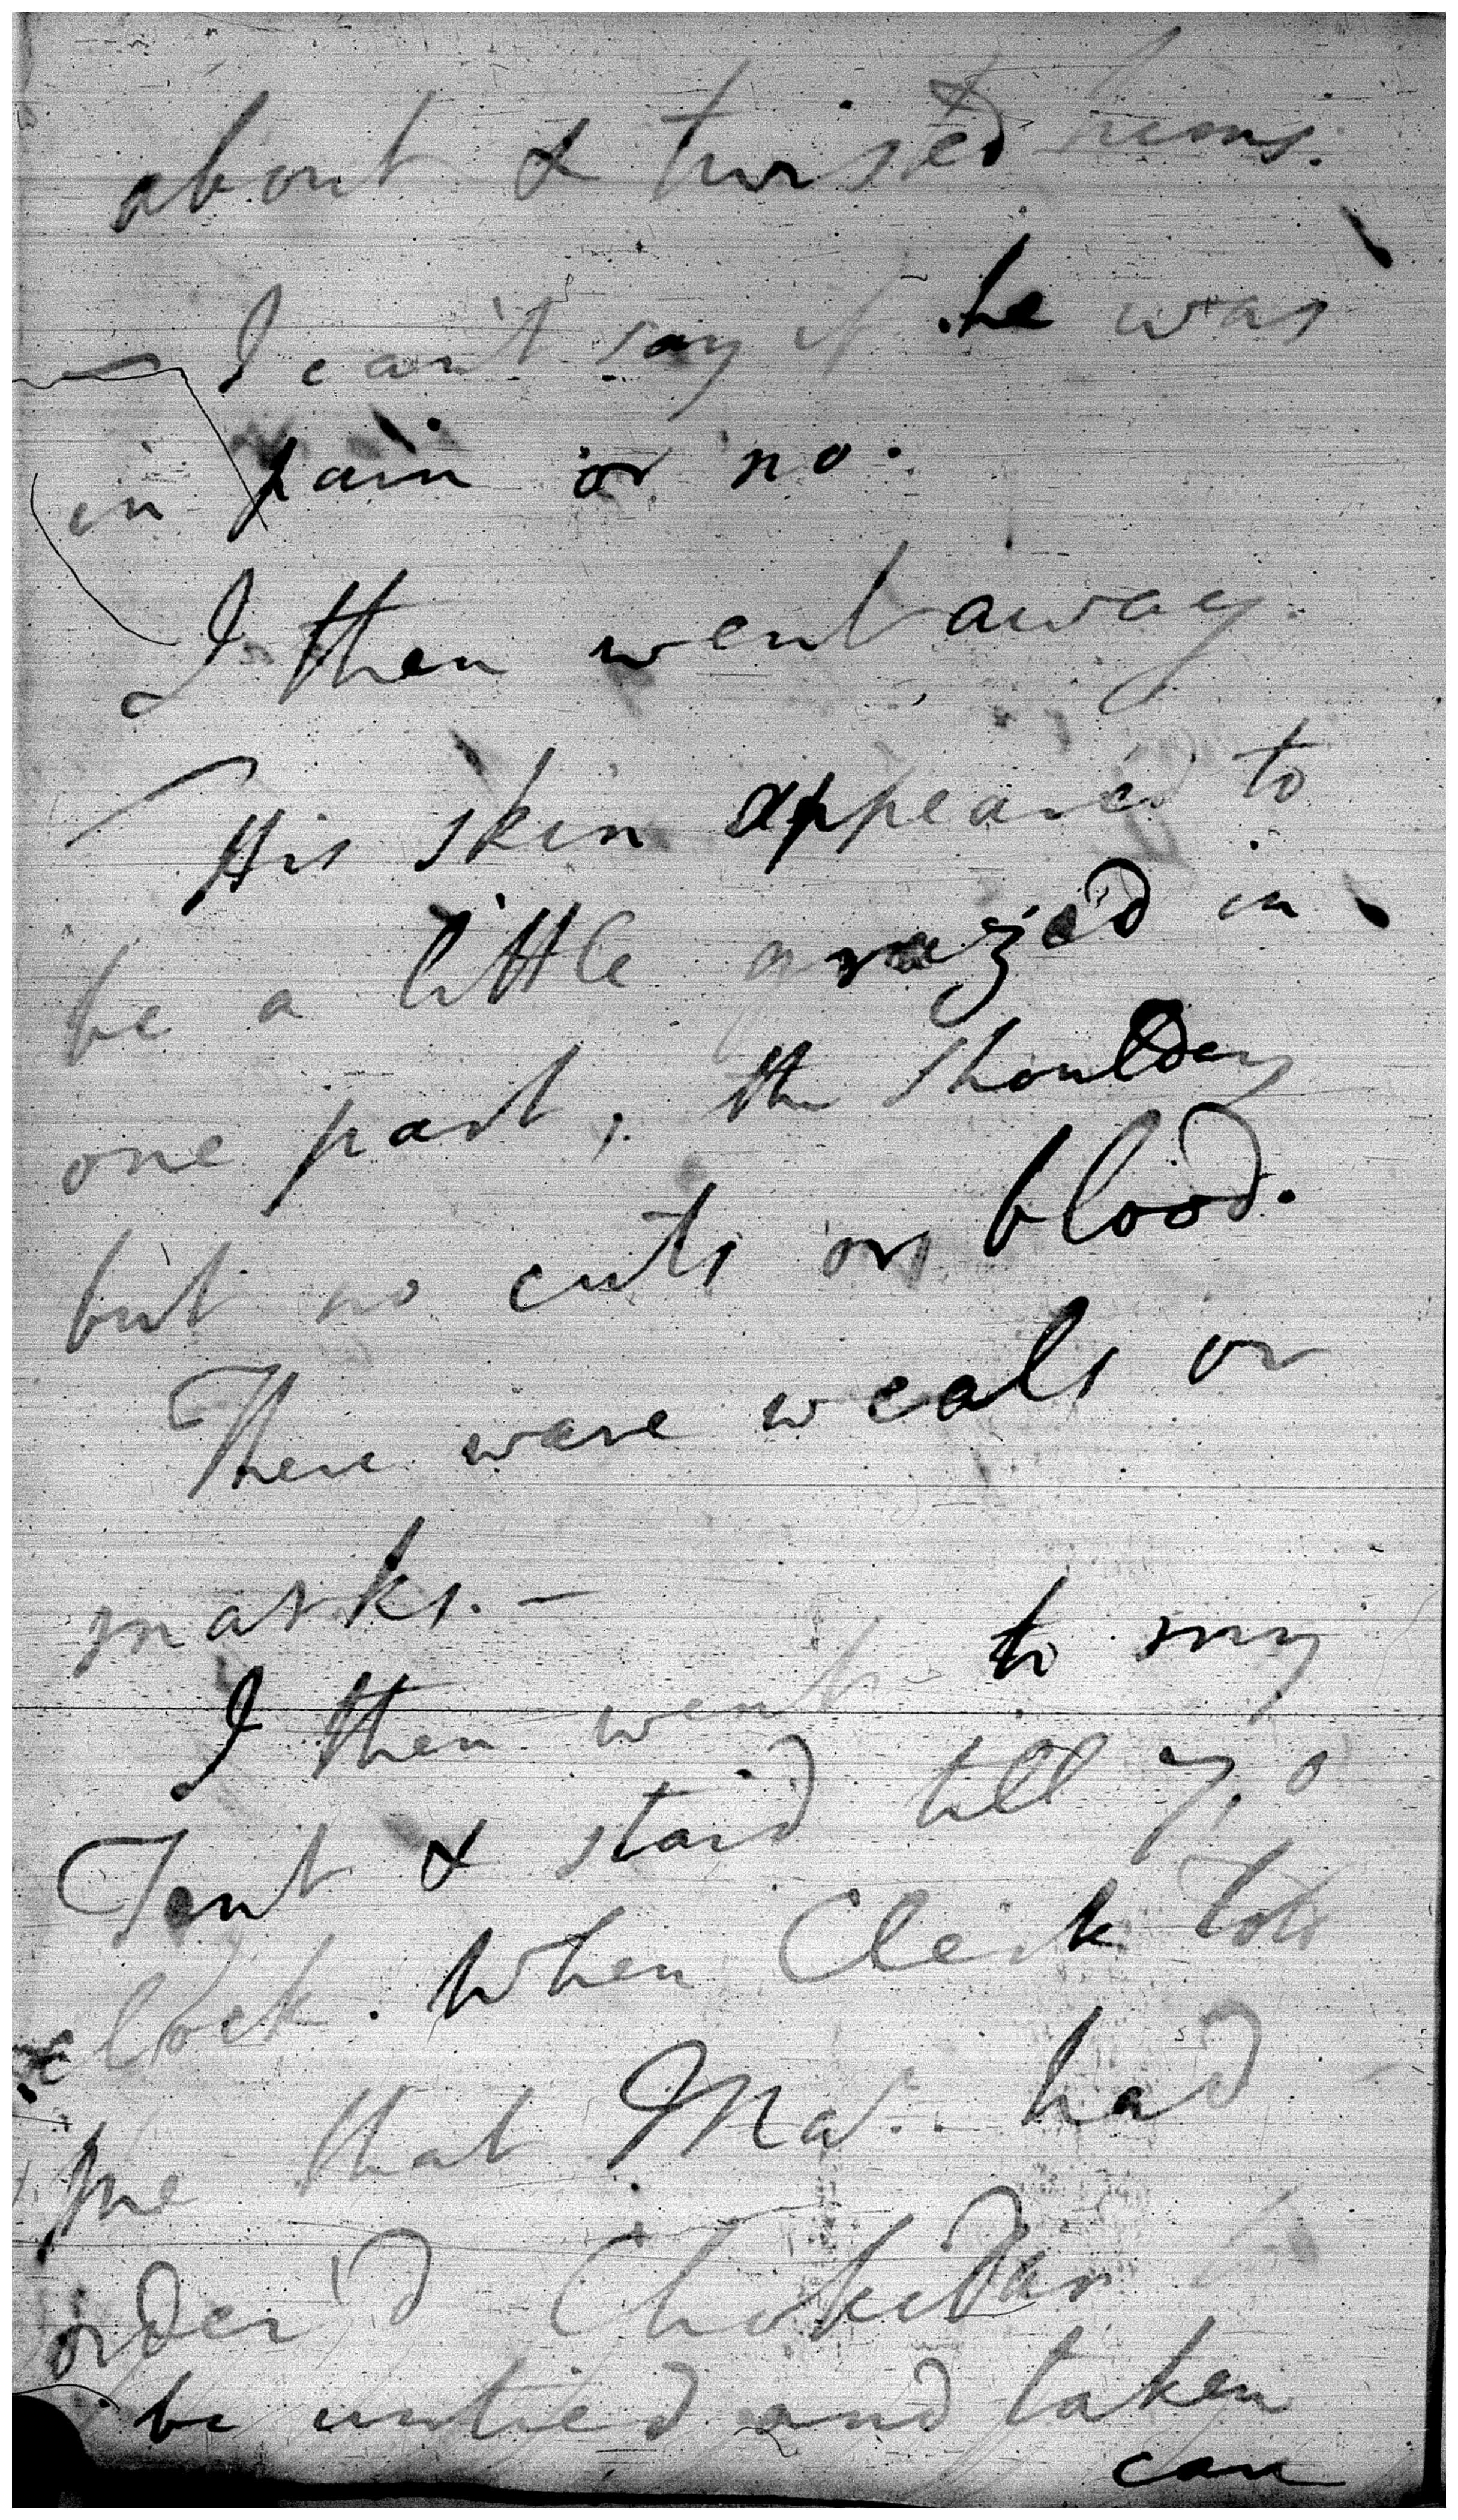 about & twisted hims.
I can't say if he was
in pain or no.
I then went away.
His skin appeared to
be a little grazed in
one part, the shoulders
but no cuts or blood.
There were weals or
marks. —
I then went to my
Tent & staid till 7, o
clock. When Clerk told
me that Ma. had
order'd Chokedar
be untied and taken
care